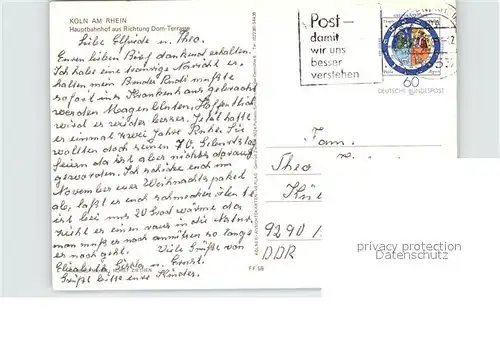 KÖLN AM RHEIN
Hauptbahnhof aus Richtung Dom-Terrasse
Liebe Elfriede u. Theo.
Euren lieben Brief dankend erhalten.
Ich habe eine traurige Nachricht er-
halten mein Bruder Rudi mußte
sofort ins Krankenhaus gebracht
werden Magenbluten. Hoffentlich
wird es wieder besser. Jetzt hatte
er einmal zwei Jahre Ruhe. Sie
wollten doch seinen 70. Geburtstag
feiern da ist aber nichts daraus
geworden. Ich schicke euch im
November euer Weihnachtspaket
ab, laßt es euch schmecken
ist bei uns 20 Grad wärme da
zieht es einen raus in die Natur,
man muß es noch ausnützen so lange
es noch geht. Viele Grüße von
Elisabeth, u. Ernst.
Grüßt bitte eure Kinder.
FF 58
Post –
damit
wir uns
besser
verstehen
60
DEUTSCHE BUNDESPOST
Fam.
Theo
9290
DDR
privacy protection
Datenschutz